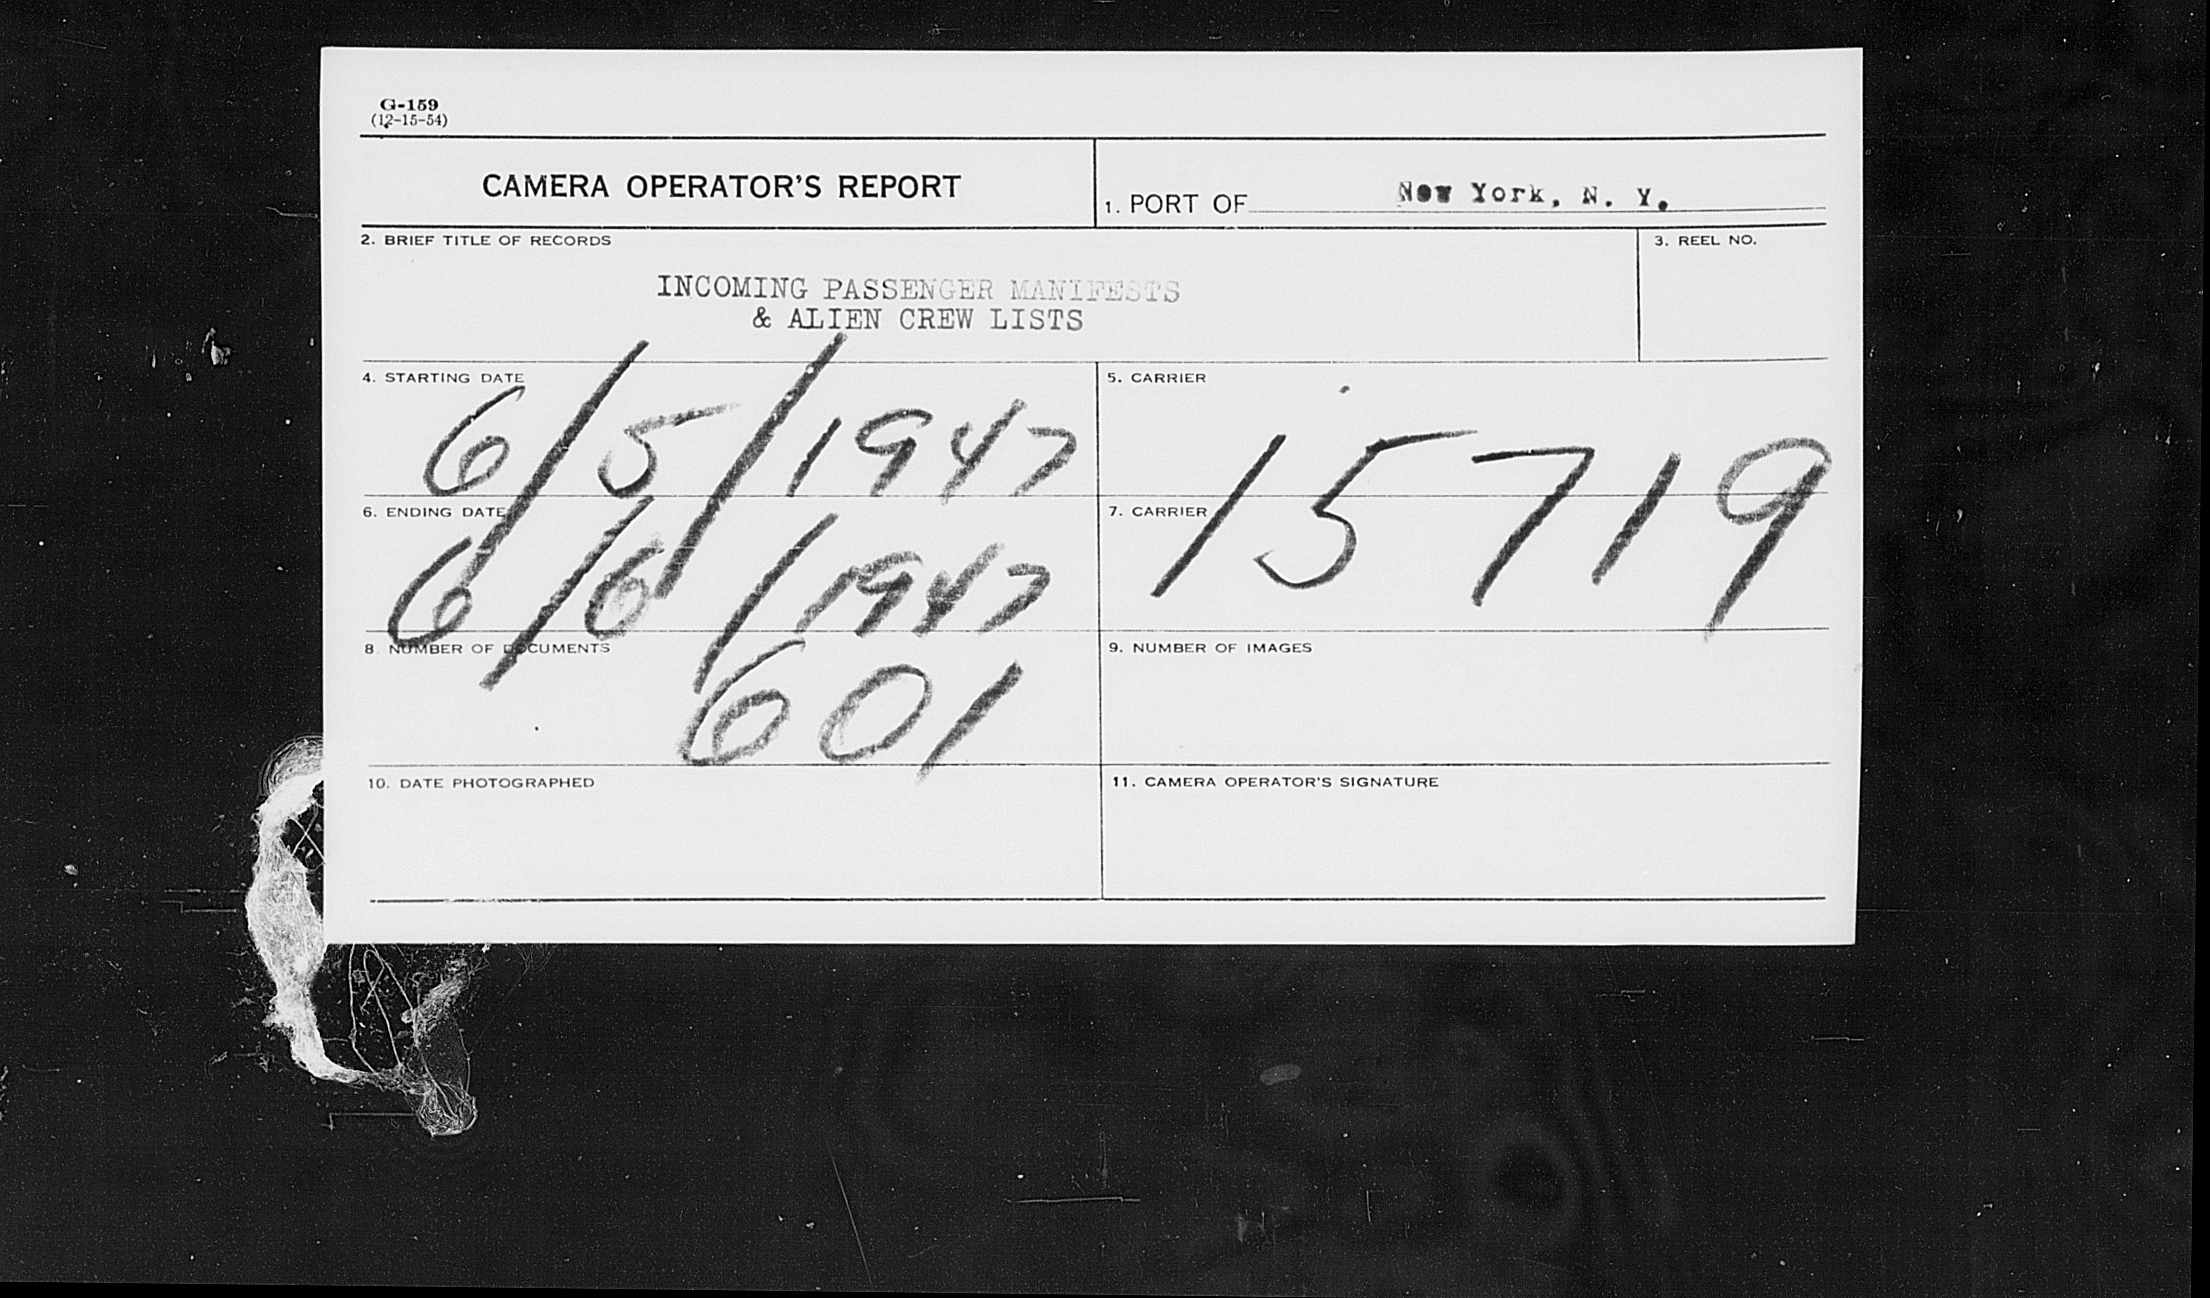 G-159
(12-15-54)
CAMERA OPERATOR'S REPORT
1. PORT OF New York, N. Y.
2. BRIEF TITLE OF RECORDS
3. REEL NO.
INCOMING PASSENGER MANIFESTS
& ALIEN CREW LISTS
4. STARTING DATE
6/5/1947
5. CARRIER
15719
6. ENDING DATE
6/6/1947
7. CARRIER
8. NUMBER OF DOCUMENTS
601
9. NUMBER OF IMAGES
10. DATE PHOTOGRAPHED
11. CAMERA OPERATOR'S SIGNATURE